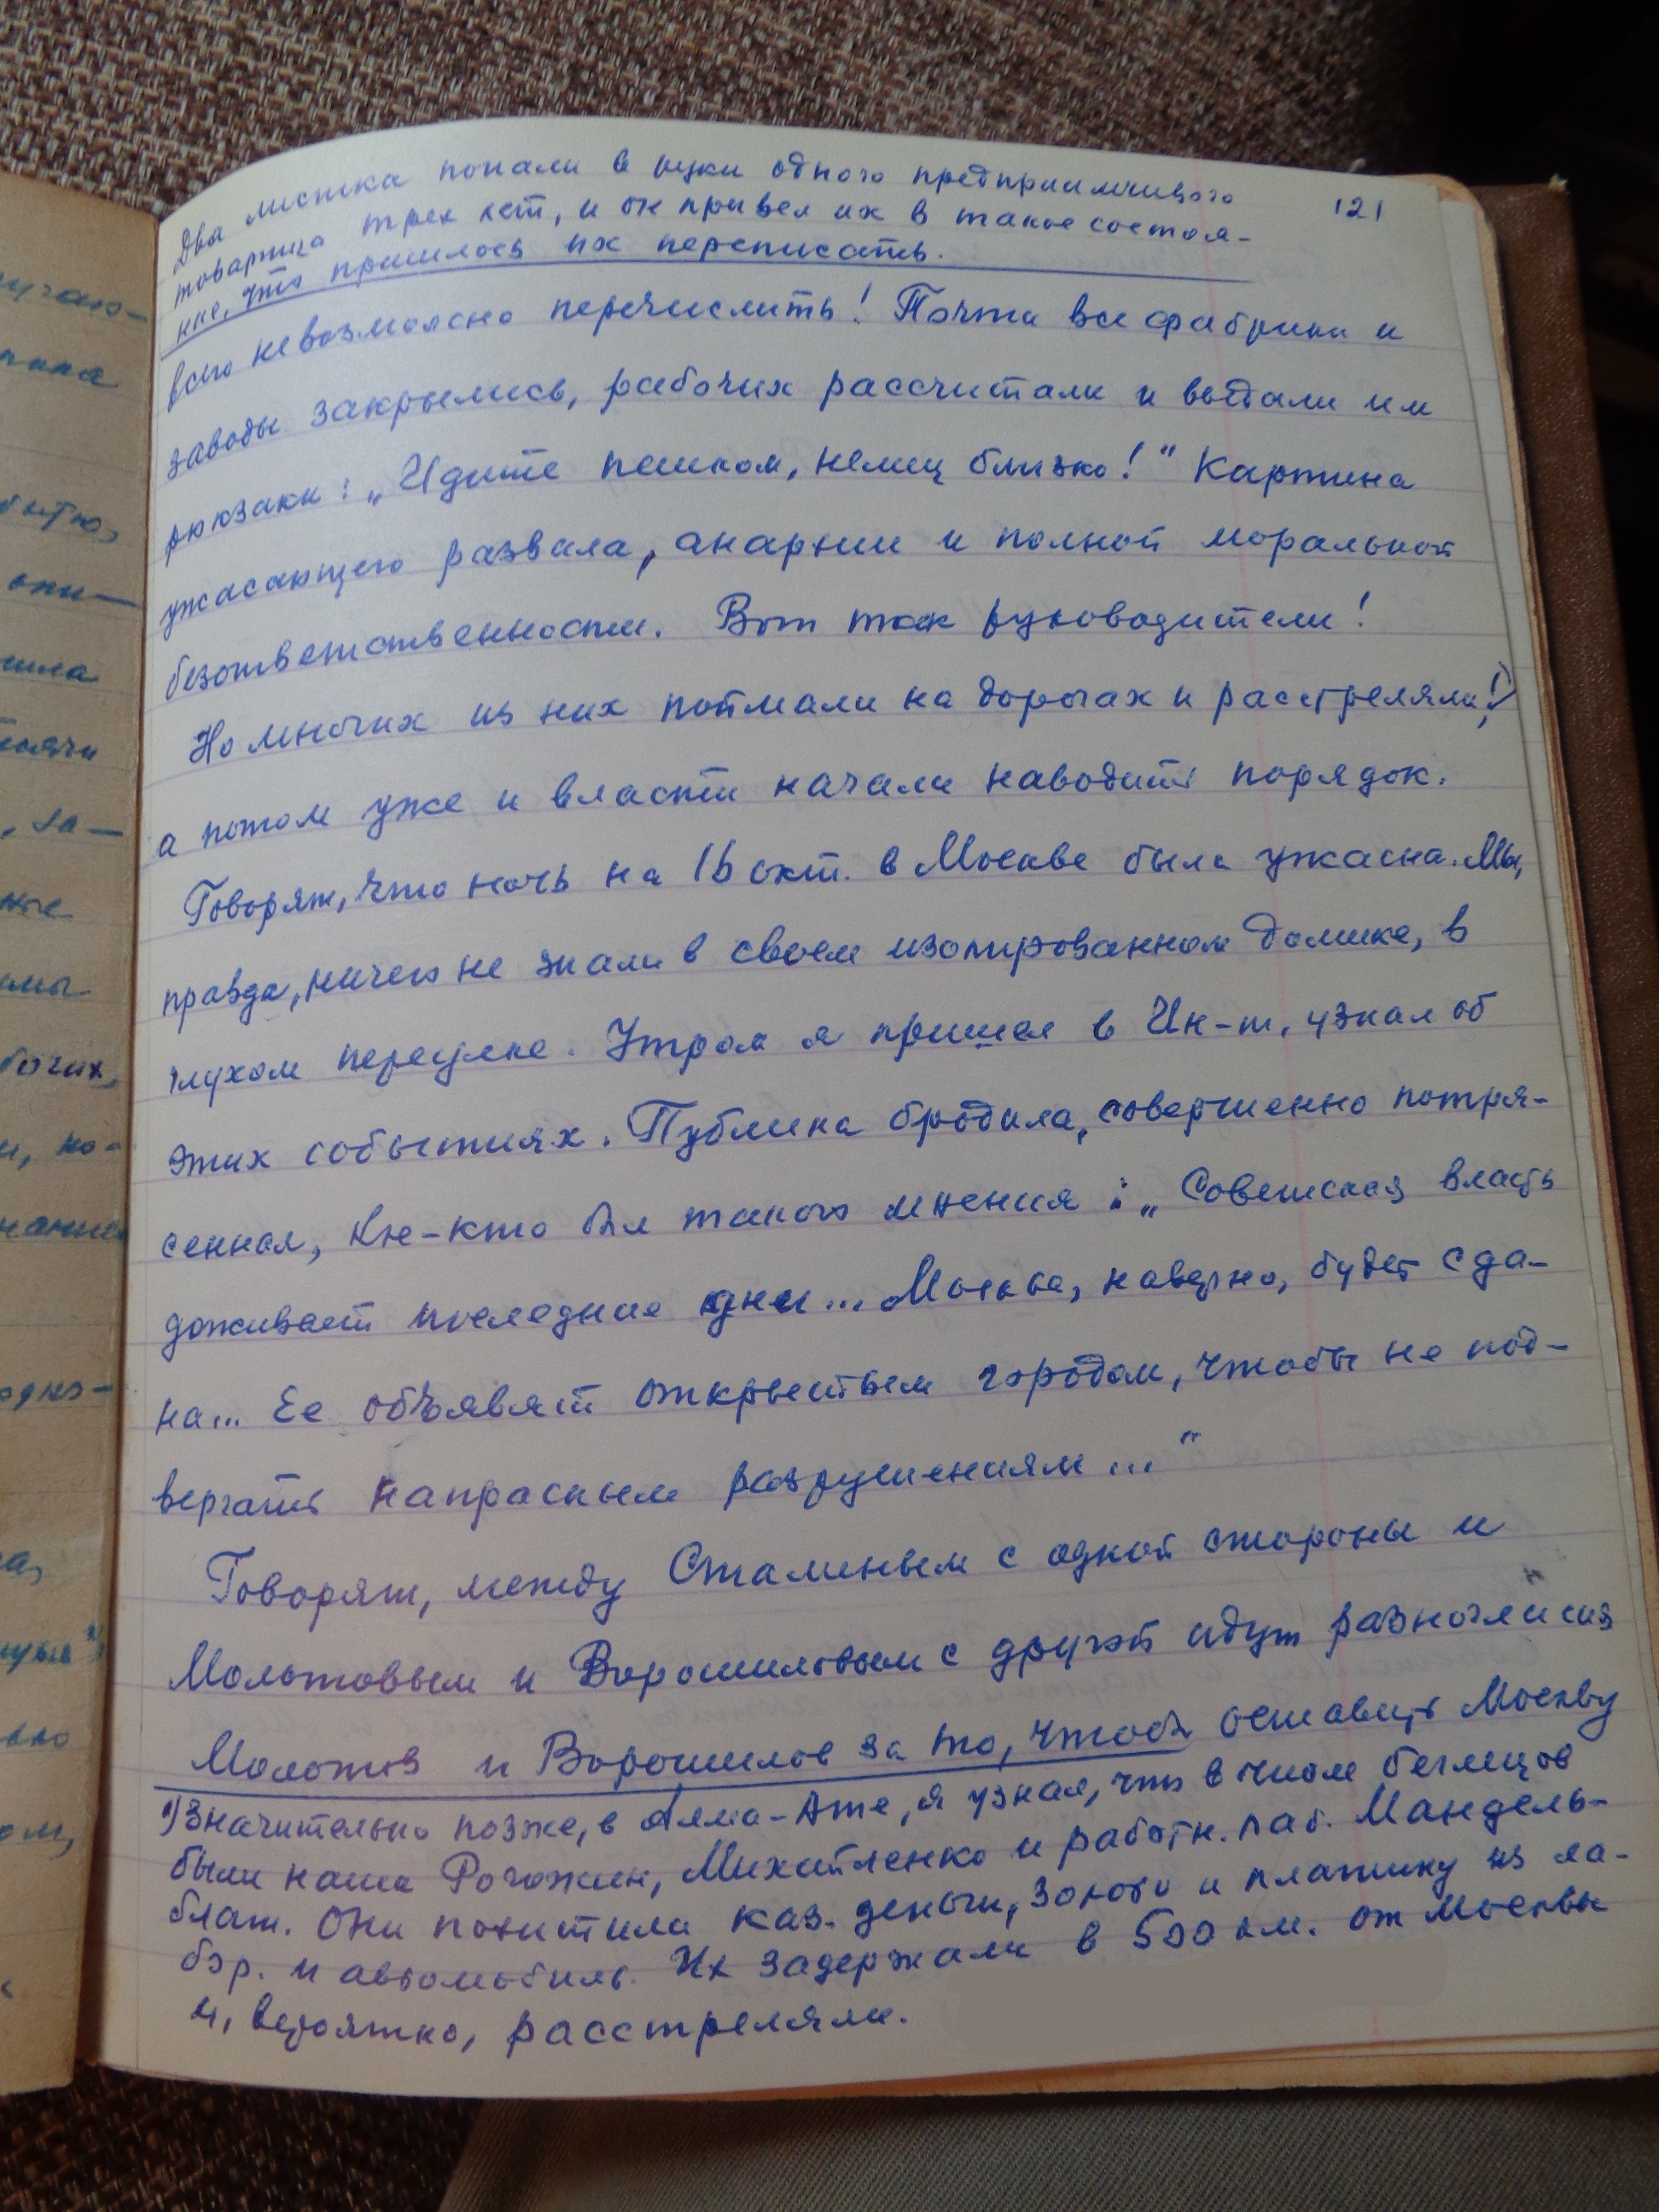 121
Два листика попали в руки одного предприимчивого
товарища трех лет, и он привел их в такое состоя-
ние, что пришлось их переписать.
всего невозможно перечислить! Почти все фабрики и
заводы закрылись, рабочих рассчитали и выдали им
рюкзаки: „Идите пешком, немец близко!" Картина
ужасающего развала, анархии и полной моральной
безответственности. Вот так руководители!
Но многих из них поймали на дорогах и расстреляли!¹⁾,
а потом уже и власти начали наводить порядок.
Говорят, что ночь на 16 окт. в Москве была ужасна. Мы,
правда, ничего не знали в своем изолированном домике, в
глухом переулке. Утром я пришел в Ин-т, узнал об
этих событиях. Публика бродила, совершенно потря-
сенная, Кое-кто был такого мнения: „Советская власть
доживает последние дни... Москва, наверно, будет сда-
на... Ее объявят открытым городом, чтобы не под-
вергать напрасным разрушениям..."
Говорят, между Сталиным с одной стороны и
Молотовым и Ворошиловым с другой идут разногласия
Молотов и Ворошилов за то, чтобы оставить Москву
¹⁾Значительно позже, в Алма-Ате, я узнал, что в числе беглецов
были наши Рогожин, Михайленко и работн. лаб. Мандель-
блат. Они похитили каз. деньги, золото и платину из ла-
бор. и автомобиль. Их задержали в 500 км. от Москвы
и, вероятно, расстреляли.
угаю-
бытю,
опи-
шла
, за-
ные
бочих,
и, но-
одно-